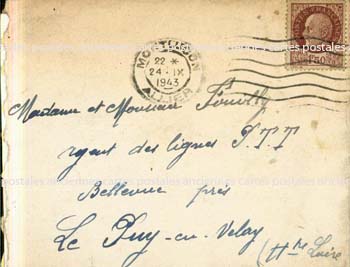 MONTLUÇON
22 *
24 - IX
1943
ALLIER
Madame et Monsieur
agent des lignes P.T.T
Bellevue près
Le Puy-en-Velay
(Hte Loire
postales anciennes cartes postales anciennes cartes postales